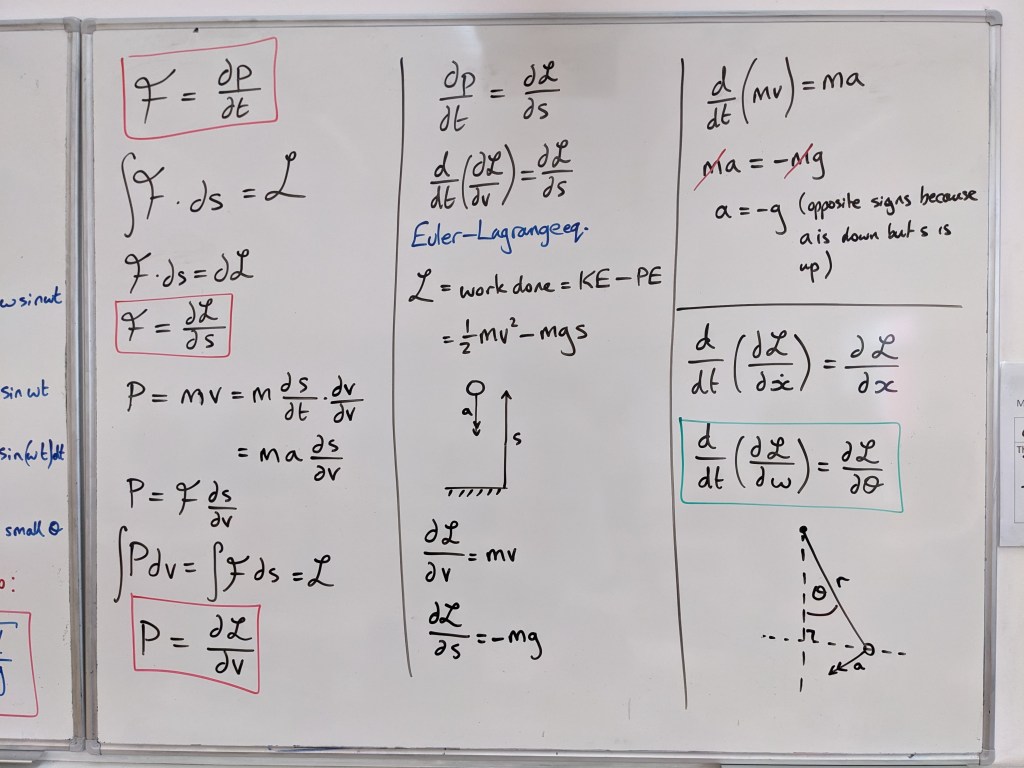 w sinwt
sin wt
sin(wt)dt
small θ
F = ∂p/∂t
∫F · ds = L
F · ds = ∂L
F = ∂L/∂s
P = mv = m ∂s/∂t · ∂v/∂v
= ma ∂s/∂v
P = F ∂s/∂v
∫Pdv = ∫F ds = L
P = ∂L/∂v
∂p/∂t = ∂L/∂s
d/dt (∂L/∂v) = ∂L/∂s
Euler-Lagrange eq.
L = work done = KE - PE
= 1/2 mv² - mgs
a
s
∂L/∂v = mv
∂L/∂s = -mg
d/dt (mv) = ma
ma = -mg
a = -g (opposite signs because
a is down but s is
up)
d/dt (∂L/∂ẋ) = ∂L/∂x
d/dt (∂L/∂w) = ∂L/∂θ
θ
r
a